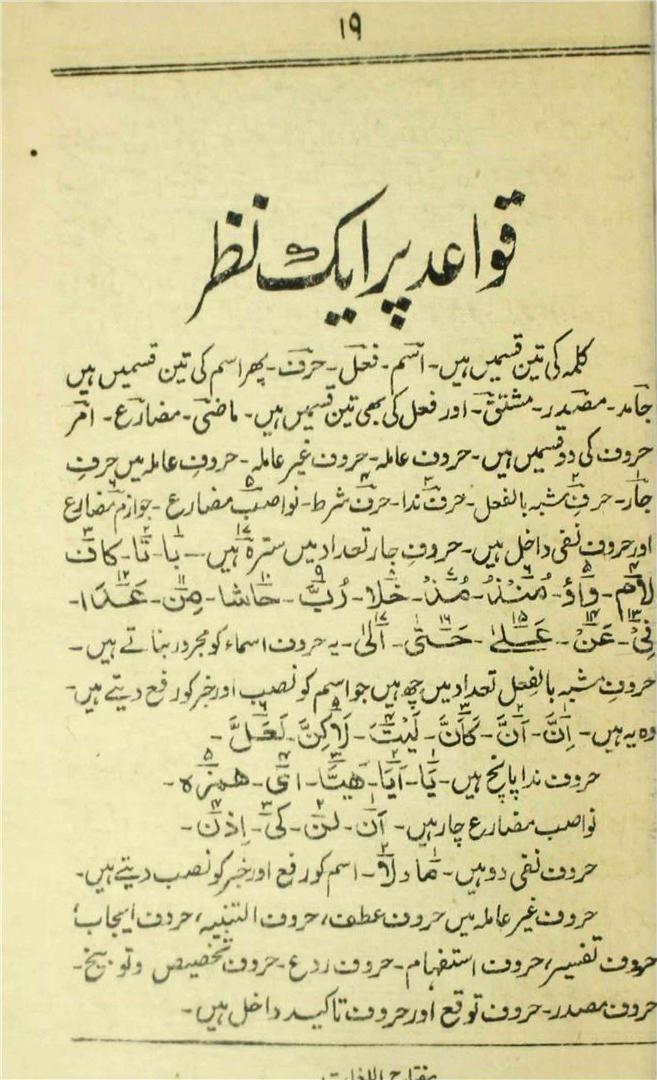 ۱۹
قواعد پر ایک نظر
کلمہ کی تین قسمیں ہیں۔ اسم۔ فعل۔ حرف۔ پھر اسم کی تین قسمیں ہیں
جامد۔ مصدر۔ مشتق۔ اور فعل کی بھی تین قسمیں ہیں۔ ماضی۔ مضارع۔ امر
حروف کی دو قسمیں ہیں۔ حروف عاملہ۔ حروف غیر عاملہ۔ حروفِ عاملہ میں حرفِ
جار۔ حرفِ مشبہ بالفعل۔ حرفِ ندا۔ حرفِ شرط۔ نواصبِ مضارع۔ جوازمِ مضارع
اور حروف نفی داخل ہیں۔ حروفِ جار تعداد میں سترہ ۱۷ ہیں۔ بَا۔ تَا۔ کَاف
لَام۔ وَاوُ۔ مُنْذُ۔ مُذْ۔ خَلَا۔ رُبَّ۔ حَاشَا۔ مِنْ۔ عَدَا۔
فِیْ۔ عَنْ۔ عَلٰے۔ حَتّٰی۔ اِلٰی۔ یہ حروف اسماء کو مجرور بناتے ہیں۔
حروفِ مشبہ بالفعل تعداد میں چھ ہیں جو اسم کو نصب اور خبر کو رفع دیتے ہیں۔
وہ یہ ہیں۔ اِنَّ۔ اَنَّ۔ کَاَنَّ۔ لَیْتَ۔ لَاکِنَّ۔ لَعَلَّ۔
حروف ندا پانچ ہیں۔ یَا۔ اَیَا۔ هَیَّا۔ اَیْ۔ همزہ۔
نواصب مضارع چار ہیں۔ اَنْ۔ لَنْ۔ کَیْ۔ اِذَنْ۔
حروف نفی دو ہیں۔ مَا و لَا۔ اسم کو رفع اور خبر کو نصب دیتے ہیں۔
حروف غیر عاملہ میں حروف عطف، حروف التنبیہ، حروف ایجاب،
حروف تفسیر، حروف استفہام۔ حروف ردع۔ حروف تخصیص و توبیخ۔
حروف مصدر۔ حروف توقع اور حروف تاکید داخل ہیں۔